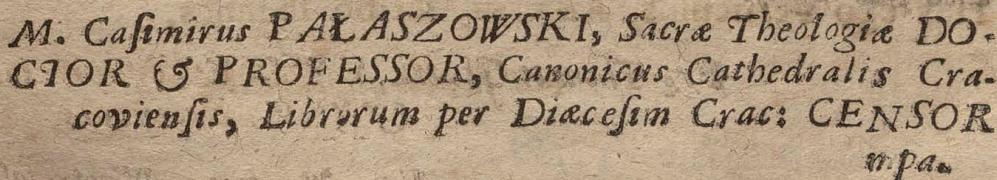 M. Caſimirus PAŁASZOWSKI, Sacræ Theologiæ DO-
CTOR & PROFESSOR, Canonicus Cathedralis Cra-
covienſis, Librorum per Diæceſim Crac: CENSOR
mpa.